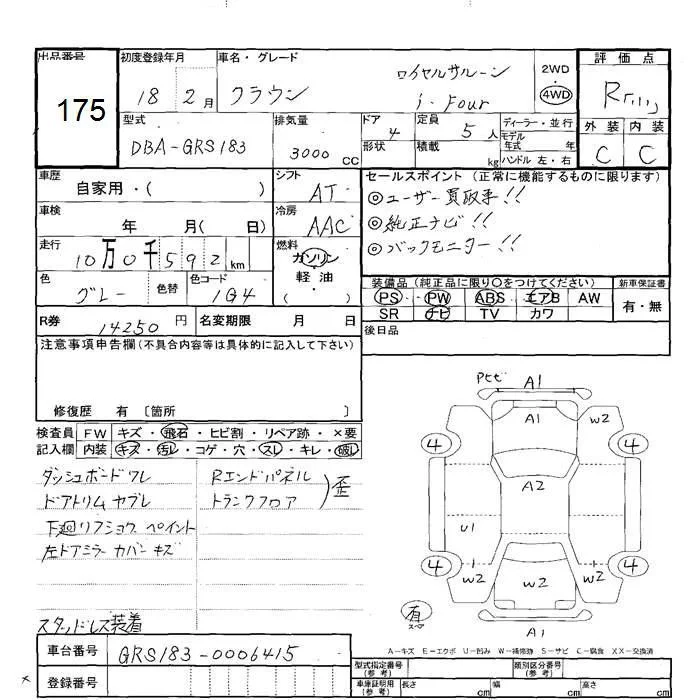 出品番号 175
初度登録年月 18 2月
車名・グレード クラウン ロイヤルサルーン i-Four
2WD
4WD
評価点 R
外装 内装
C C
型式 DBA-GRS183
排気量 3000 CC
ドア 4
形状
定員 5人
積載 kg
ディーラー・並行
モデル年式 年
ハンドル 左・右
車歴 自家用・( )
シフト AT
車検 年 月( 日)
冷房 AAC
走行 10万0千592 km
燃料 ガソリン・軽油・( )
色 グレー
色替
色コード 1G4
R券 14250円
名変期限 月 日
セールスポイント (正常に機能するものに限ります)
◎ユーザー買取車!!
◎純正ナビ!!
◎バックモニター!!
装備品 (純正品に限り○をつけてください)
新車保証書
PS PW ABS エアB AW
有・無
SR ナビ TV カワ
後日品
注意事項申告欄(不具合内容等は具体的に記入して下さい)
修復歴 有 〔箇所 〕
検査員記入欄
FW キズ・飛石・ヒビ割・リペア跡・×要
内装 キズ・汚レ・コゲ・穴・スレ・キレ・破レ
ダッシュボードワレ
ドアトリム ヤブレ
下廻リフショク ペイント
左ドアミラー カバー キズ
スタッドレス装着
Rエンドパネル
トランクフロア
歪
A1
A1
W2
4
4
A2
U1
4
4
W2
W2
W2
有
スペア
A1
A-キズ E-エクボ U-凹み W-補修跡 S-サビ C-腐食 XX-交換済
車台番号 GRS183-0006415
登録番号
型式指定番号(参考)
類別区分番号(参考)
車庫証明用(参考) 長さ cm 幅 cm 高さ cm